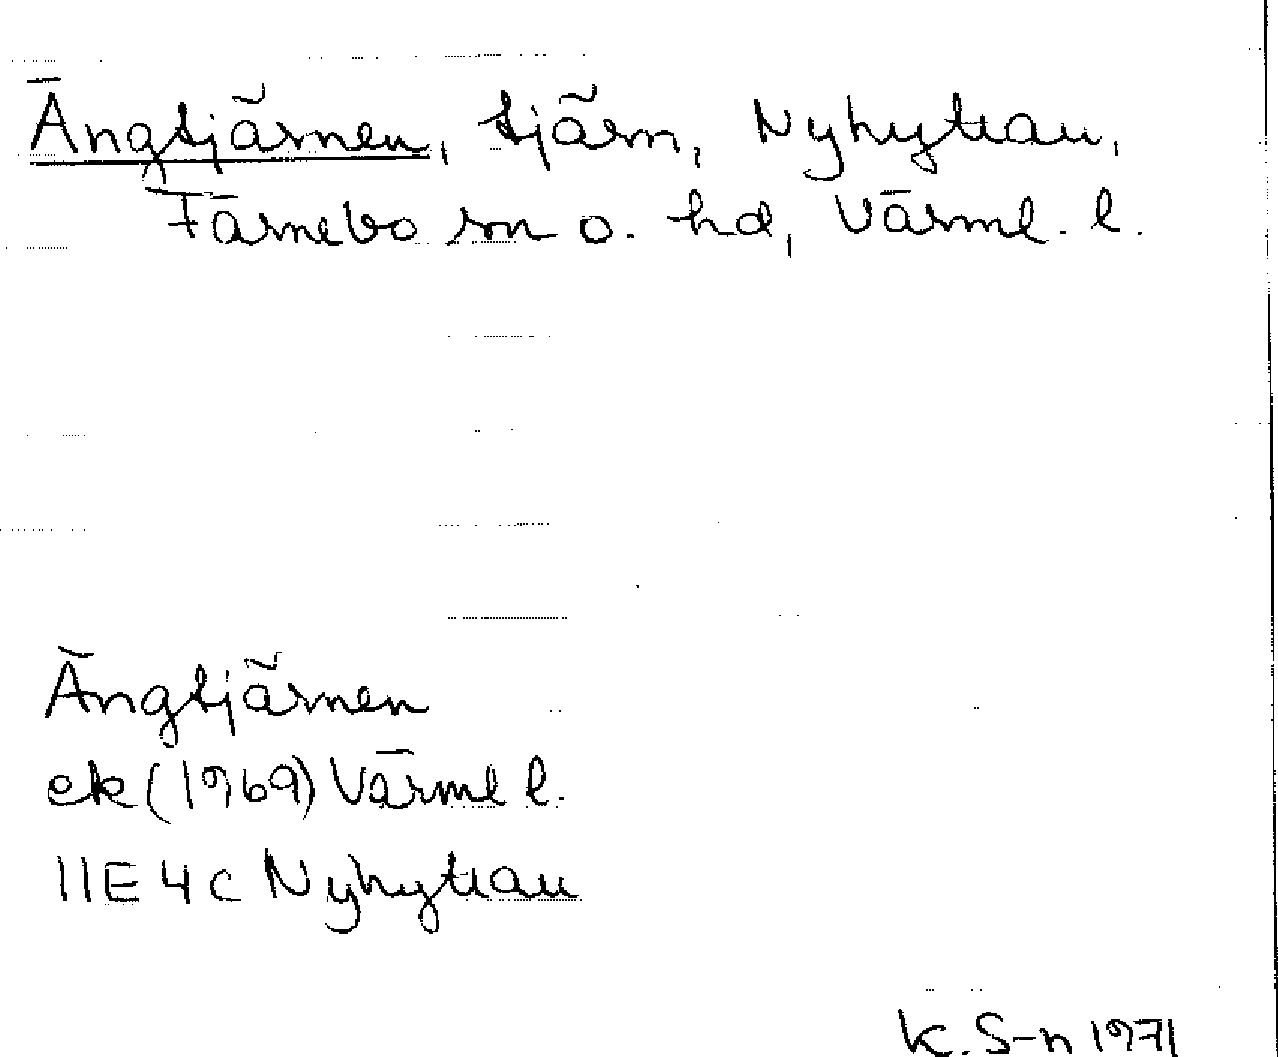 Ängtjärnen, tjärn, Nyhyttan,
Färnebo sn o. hd, Värml. l.
Ängtjärnen
ek (1969) Värml l.
11E4c Nyhyttan
K. S-n 1971